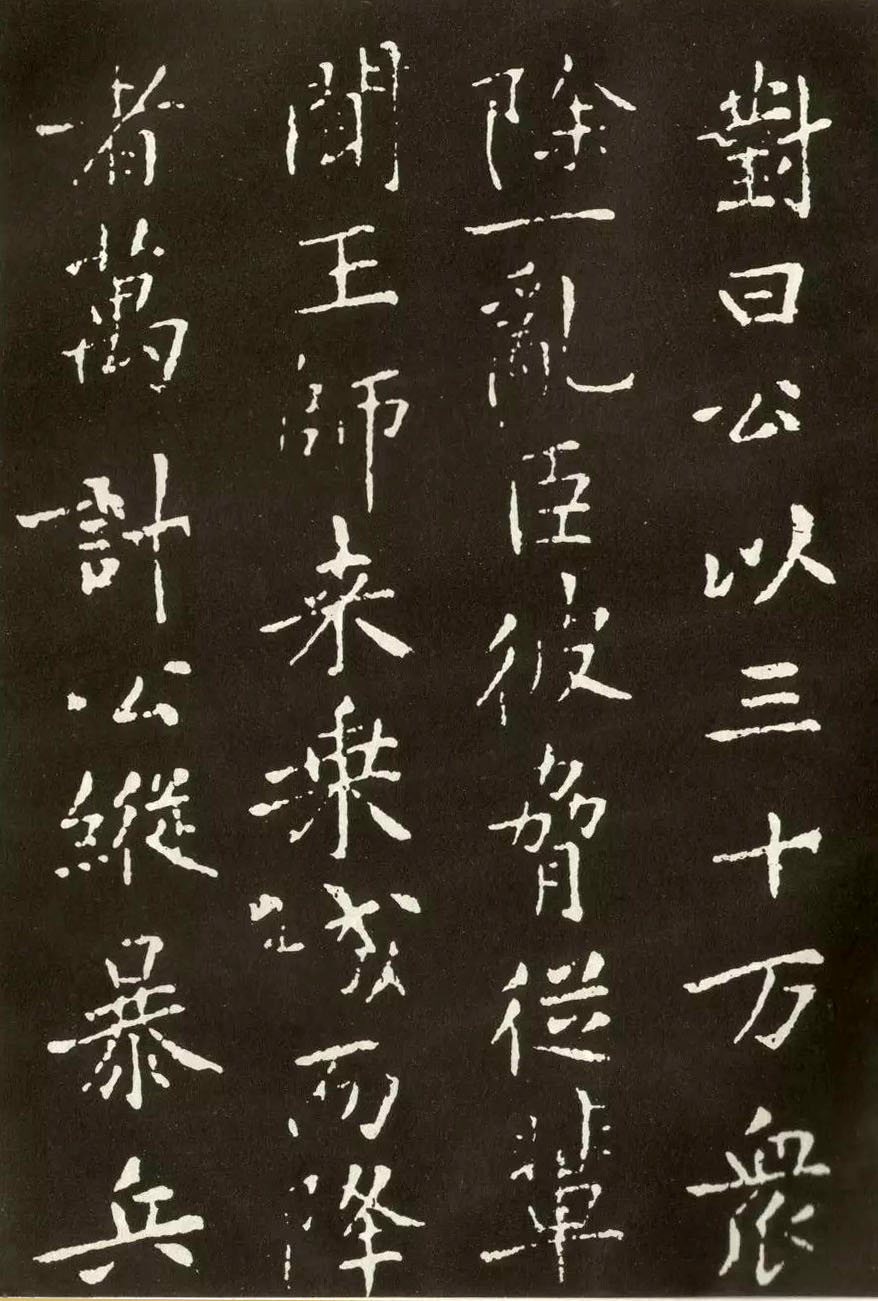 對曰公以三十万眾
除一亂臣彼脅從輩
聞王師来乗而降
者萬計公縱暴兵